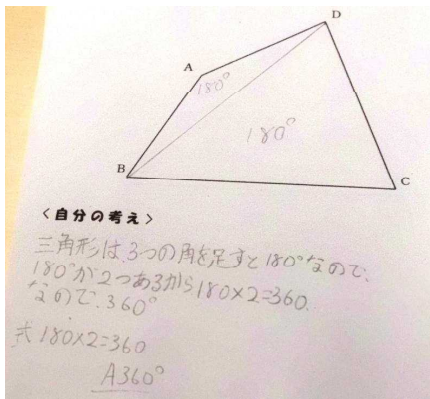 D
A
180°
180°
B
C
<自分の考え>
三角形は、3つの角を足すと180°なので、
180°が2つあるから180×2=360.
なので、360°
式180×2=360
A360°